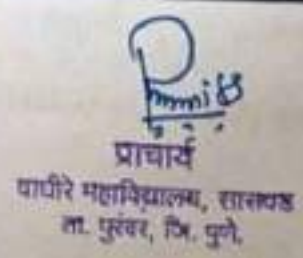 प्राचार्य
वाघीरे महाविद्यालय, सासवड
ता. पुरंदर, जि. पुणे.